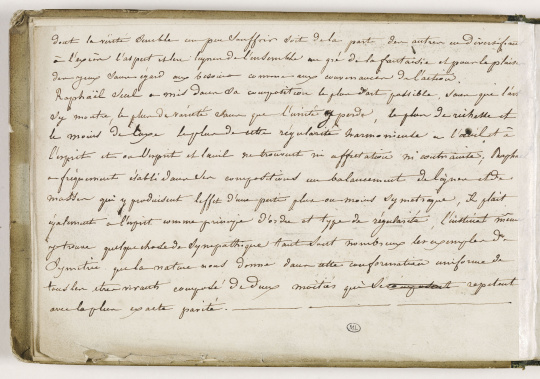 dont la vérité semble un peu souffrir soit de la part des autres en diversifiant
à l'excès l'aspect et les lignes de l'ensemble au gré de la fantaisie et pour le plaisir
des yeux sans égard aux besoins comme aux convenances de l'action.
Raphaël seul a mis dans sa composition le plus d'art possible, sans que l'art
s'y montre, le plus de variété sans que l'unité y perde, le plan de richesse et
le moins de luxe le plus de cette régularité harmonieuse a l'œil et à
l'esprit et où l'esprit et l'œil ne trouvent ni affectation ni contrainte, Raphaël
a fréquemment établi dans ses compositions un balancement de lignes et de
masses qui y produisent l'effet d'une part plus ou moins symétrique, Il plait
également à l'esprit comme principe d'ordre et type de régularité, l'instinct même
y trouve quelque chose de sympathique tant sont nombreux les exemples de
Symétrie que la nature nous donne dans cette conformation uniforme de
tous les êtres vivants composé de deux moitiés qui se composent repetent
avec la plus exacte parité.
ML